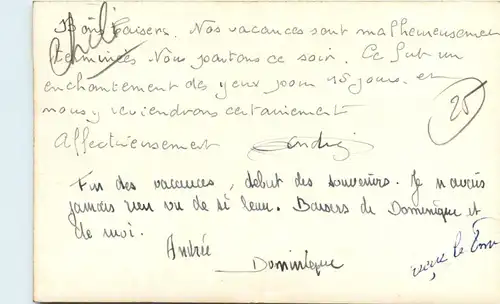 Chili
Bons baisers. Nos vacances sont malheureusement
terminées. Nous partons ce soir. Ce fut un
enchantement des yeux pour 15 jours. et
nous y reviendrons certainement
25
Affectueusement
Fin des vacances, début des souvenirs. Je n'avais
jamais rien vu de si beau. Baisers de Dominique et
de moi.
Andrée
Dominique